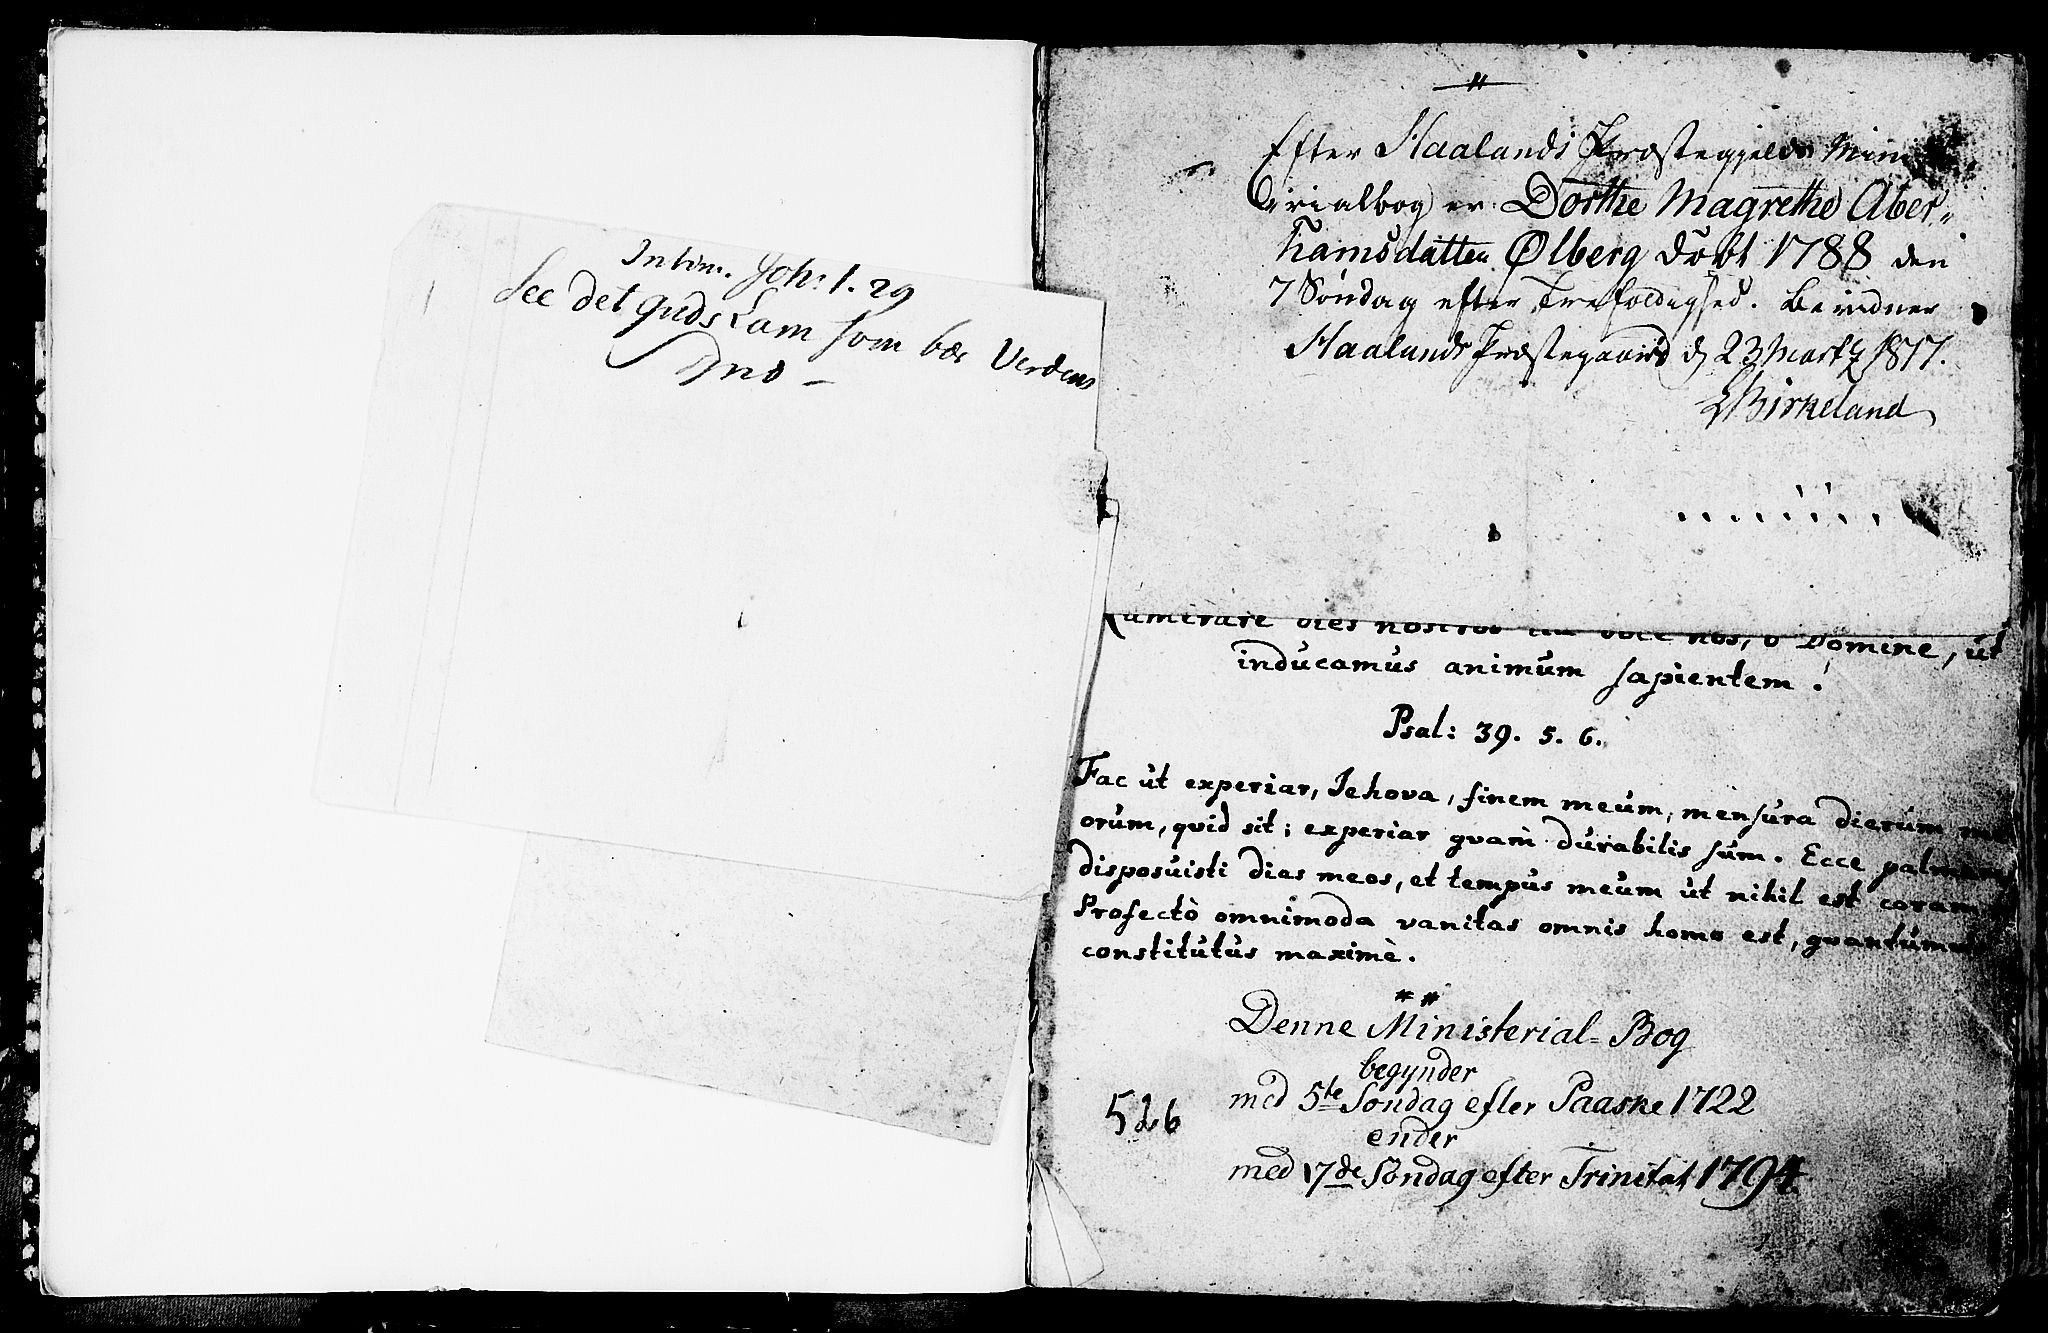 Intim. Joh: 1. 29
See det Guds Lam som bær Verdens
Synd –
Efter Haalands Præstegjelds Mini
sterialbog er Dorthe Magrethe Aber-
hamsdatter Ølberg døbt 1788 den
7 Søndag efter Trefoldighed. Bevidner
Haalands Præstegaard d 23 Marty 1817.
Birkeland
Numerare dies nostros ita doce nos, o Domine, ut
inducamus animum sapientem!
Psal: 39. 5. 6.
Fac ut experiar, Jehova, finem meum, mensura dierum me
orum, qvid sit; experiar qvam durabilis sum. Ecce palmares
disposuisti dies meos, et tempus meum ut nihil est coram
Profectò omnimoda vanitas omnis homo est, qvantumvis
constitutus maximè.
Denne Ministerial-Bog
begynder
med 5te Søndag efter Paaske 1722
ender
526
med 17de Søndag efter Trinitat 1794